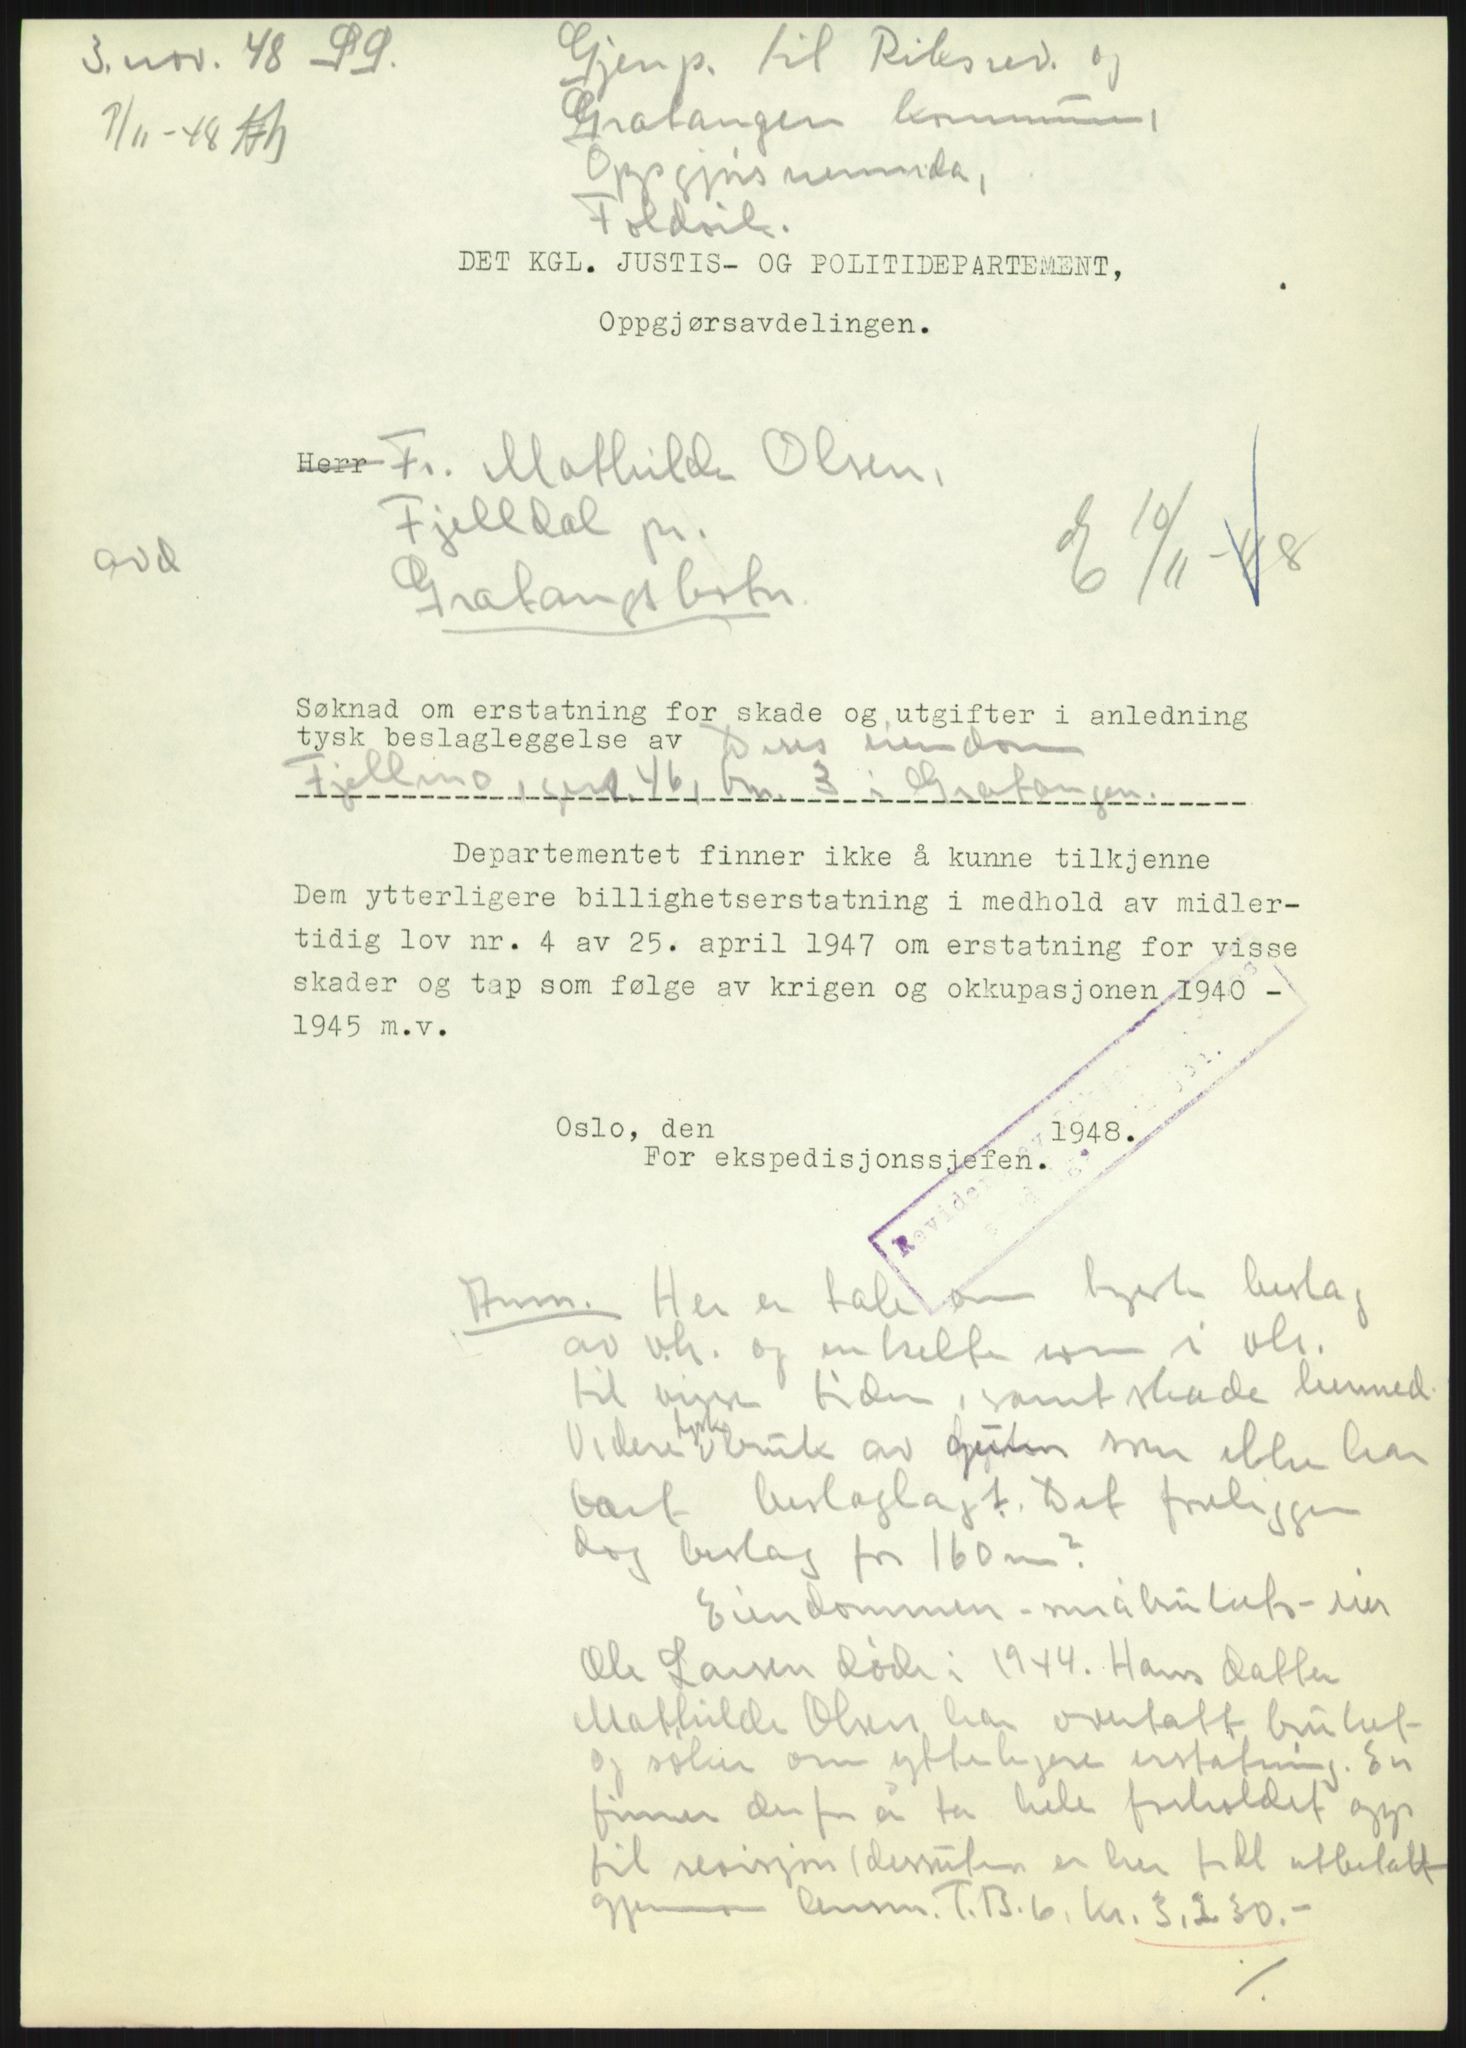 3. nov. 48 PP.
Gjenp. til Riksrev. og
Gratangen kommune,
Oppgjørsnemnda,
Foldvik.
DET KGL. JUSTIS- OG POLITIDEPARTEMENT,
Oppgjørsavdelingen.
Herr Fr. Mathilde Olsen,
Fjelldal pr.
Gratangsbotn
avd
E 10/11-48
Søknad om erstatning for skade og utgifter i anledning
tysk beslagleggelse av Deres eiendom
Fjellmo, gnr. 46, bnr. 3 i Gratangen.
Departementet finner ikke å kunne tilkjenne
Dem ytterligere billighetserstatning i medhold av midler-
tidig lov nr. 4 av 25. april 1947 om erstatning for visse
skader og tap som følge av krigen og okkupasjonen 1940 -
1945 m.v.
Oslo, den 1948.
For ekspedisjonssjefen.
Revidert av
Anm. Her er tale om tyske beslag
av v.h. og enkelte rom i vh.
til visse tider, samt skade hermed.
Videre tysk bruk av som ikke har
vært beslaglagt. Det foreligger
dog beslag for 160 m².
Eiendommen - småbrukets - eier
Ole Larsen døde i 1944. Hans datter
Mathilde Olsen har overtatt bruket
og søker om ytterligere erstatning. En
finner derfor å ta hele forholdet opp
til revisjon (dessuten er her tidl utbetalt
gjennom lensm. T.B.6. kr. 3.230.-